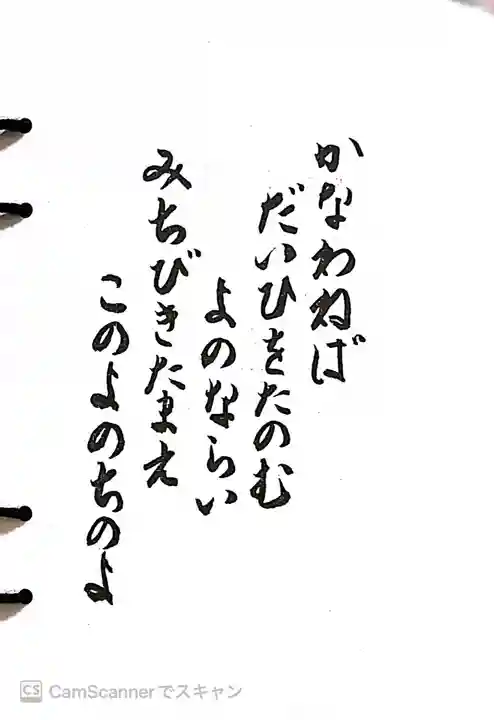 かなわねば
だいひをたのむ
よのならい
みちびきたまえ
このよのちのよ
CS CamScannerでスキャン